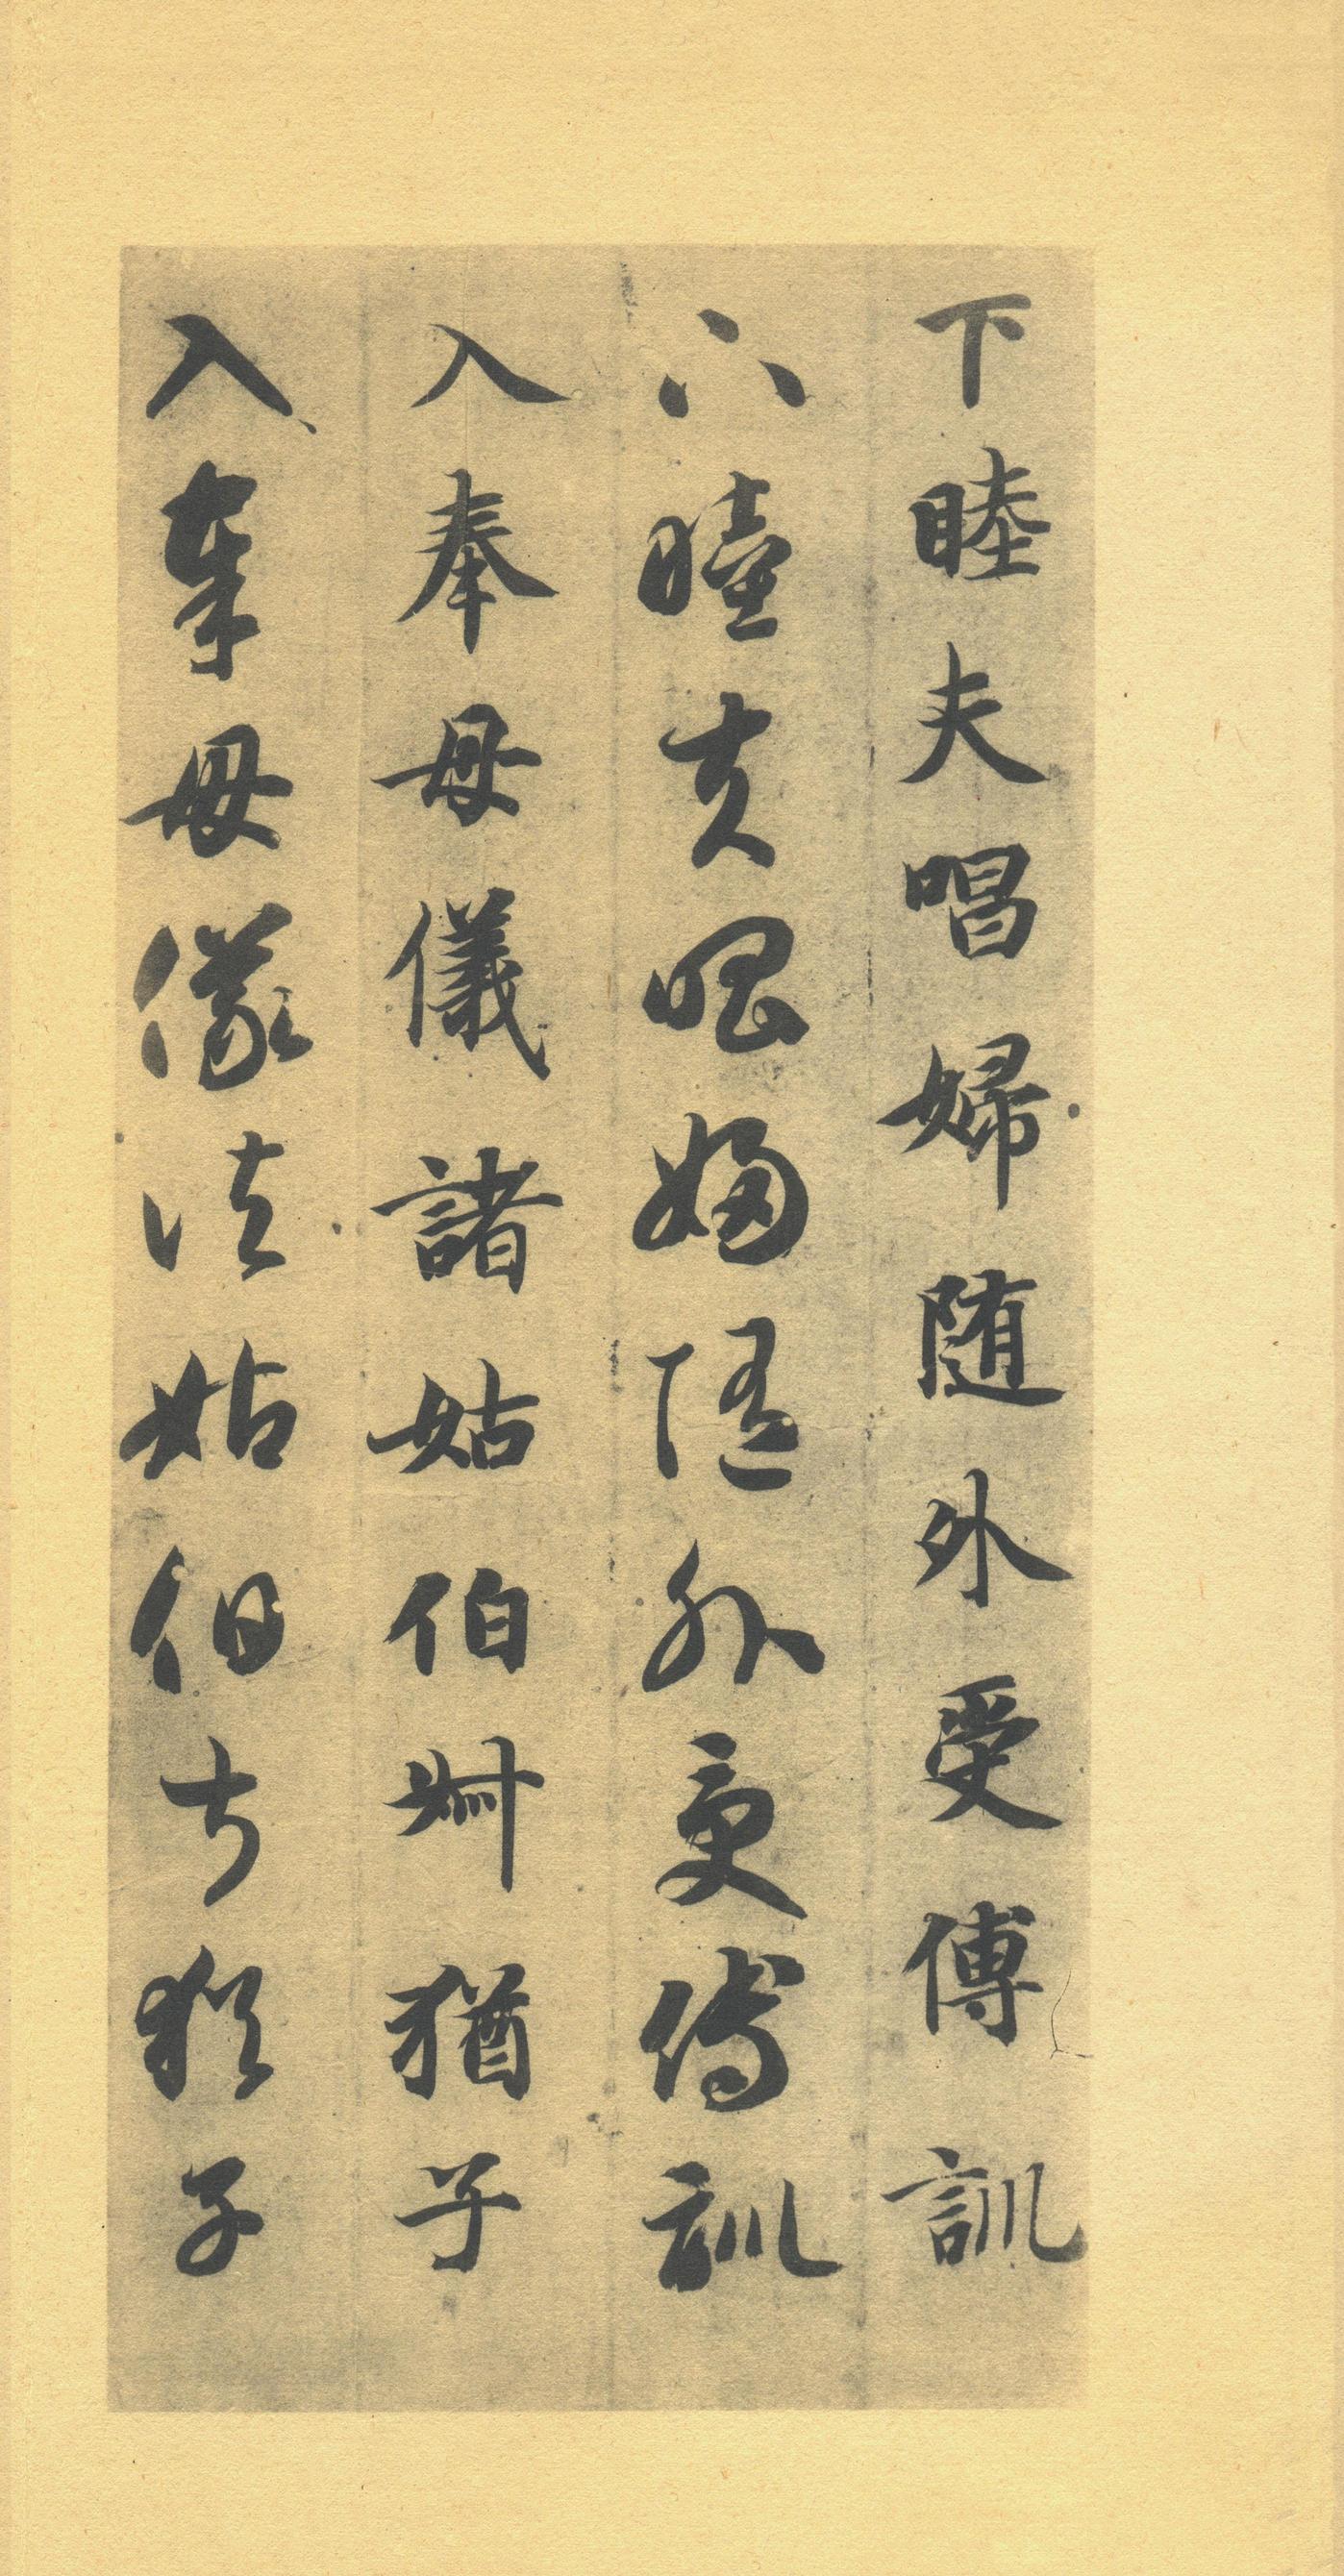 下睦夫唱婦随外受傅訓
下睦夫唱婦随外受傅訓
入奉母儀諸姑伯叔猶子
入奉母儀諸姑伯叔猶子